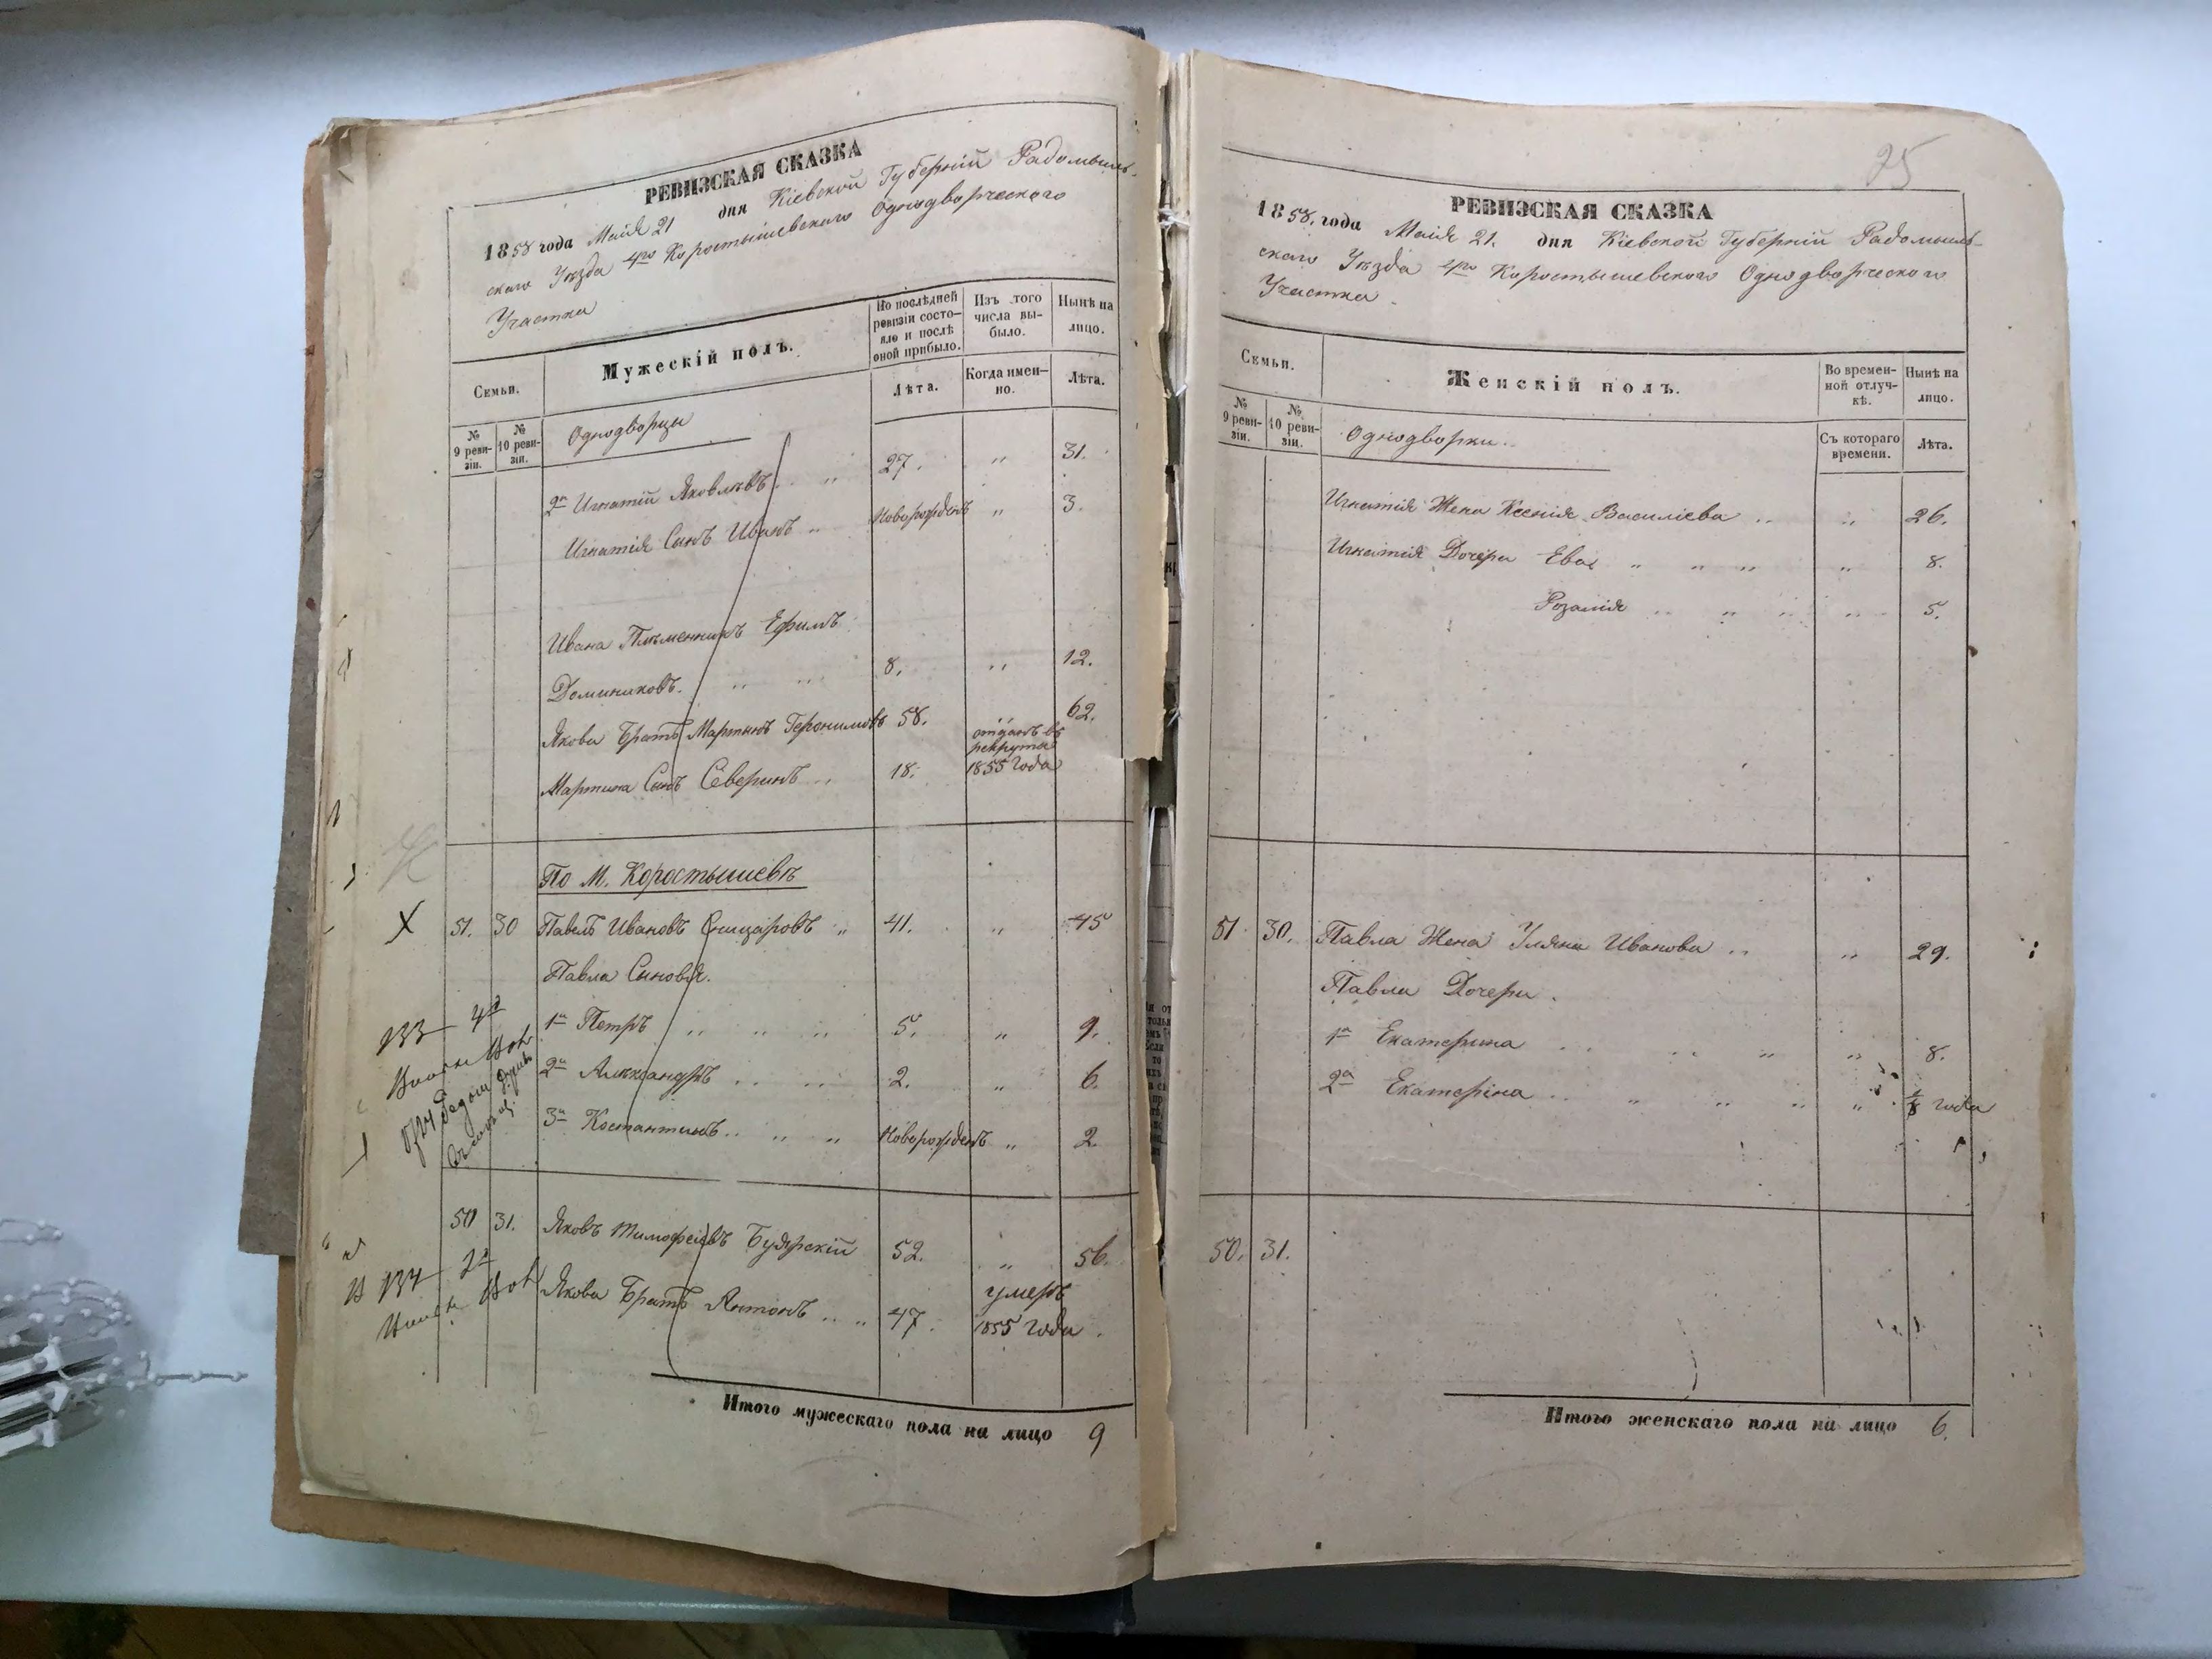 РЕВИЗСКАЯ СКАЗКА
1858 года Маія 21 дня Кіевской Губерніи Радомысль-
скаго Уѣзда 4го Коростышевскаго Однодворческаго
Участка
Семьи.
Мужескій полъ.
По послѣдней ревизіи состо-
яло и послѣ оной прибыло.
Изъ того числа вы-
было.
Нынѣ на лицо.
№ 9 реви-
зіи.
№ 10 реви-
зіи.
Однодворцы
Лѣта.
Когда имен-
но.
Лѣта.
2й Игнатій Яковлевъ .. 27. " 31.
Игнатія Сынъ Иванъ " Новорожденъ " 3.
Ивана Племенникъ Ефимъ
Доминиковъ. " " 8. " 12.
Якова Братъ Мартынъ Геронимовъ 58. " 62.
Мартина Сынъ Северинъ .. 18. отданъ въ рекруты 1855 года
По М. Коростышевѣ
51. 30 Павелъ Ивановъ Сницаровъ " 41. " 45
Павла Сыновья.
1й Петръ " " " 5. " 9.
2й Александръ .. .. 2. " 6.
3й Костантинъ .. " " Новорожденъ " 2.
133
50 31. Яковъ Тимофеевъ Буярскій 52. " 56.
134
Якова Братъ Антонъ .. .. 47. умеръ 1855 года.
Итого мужескаго пола на лицо 9
25
РЕВИЗСКАЯ СКАЗКА
1858. года Маія 21. дня Кіевской Губерніи Радомысль-
скаго Уѣзда 4го Коростышевскаго Однодворческаго
Участка.
Семьи.
Женскій полъ.
Во времен-
ной отлуч-
кѣ.
Нынѣ на лицо.
№ 9 реви-
зіи.
№ 10 реви-
зіи.
Однодворки..
Съ котораго времени.
Лѣта.
Игнатія Жена Ксенія Василіева .. " 26.
Игнатія Дочери Ева " " " " 8.
Розалія .. " " " 5.
51 30. Павла Жена Уляна Иванова .. " 29.
Павла Дочери.
1я Екатерина .. .. " " 8.
2я Екатеріна .. " " " " года
50. 31.
Итого женскаго пола на лицо 6.